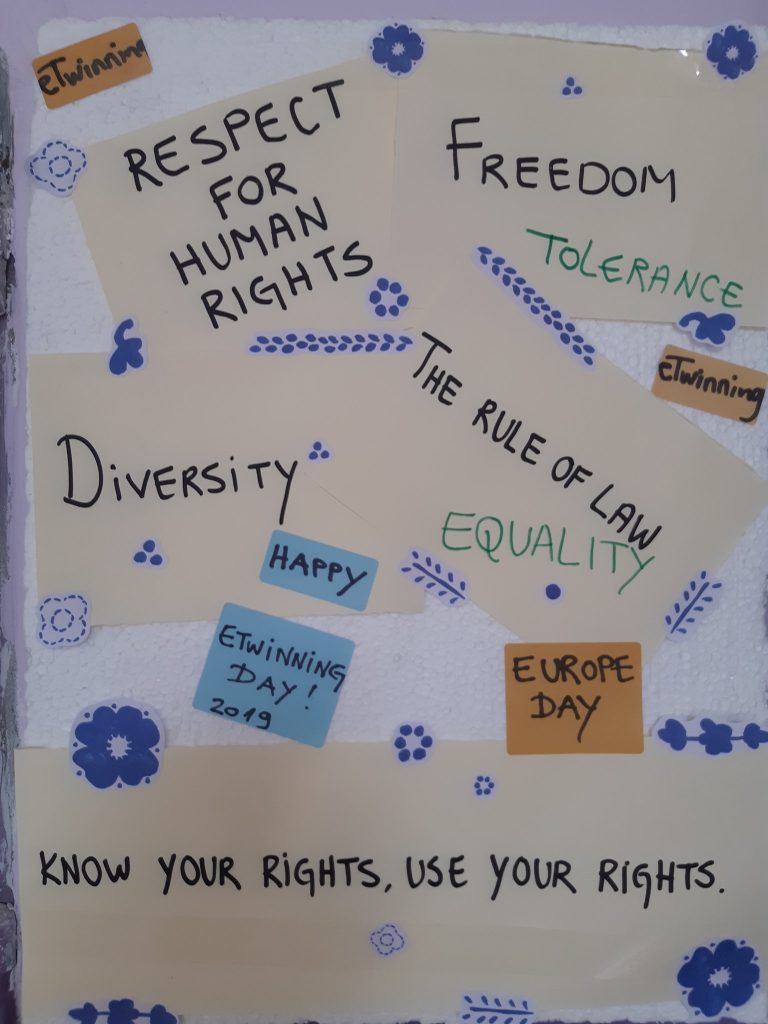 eTwinning
RESPECT
FOR
HUMAN
RIGHTS
FREEDOM
TOLERANCE
eTwinning
THE RULE OF LAW
EQUALITY
DIVERSITY
HAPPY
ETWINNING
DAY!
2019
EUROPE
DAY
KNOW YOUR RIGHTS, USE YOUR RIGHTS.